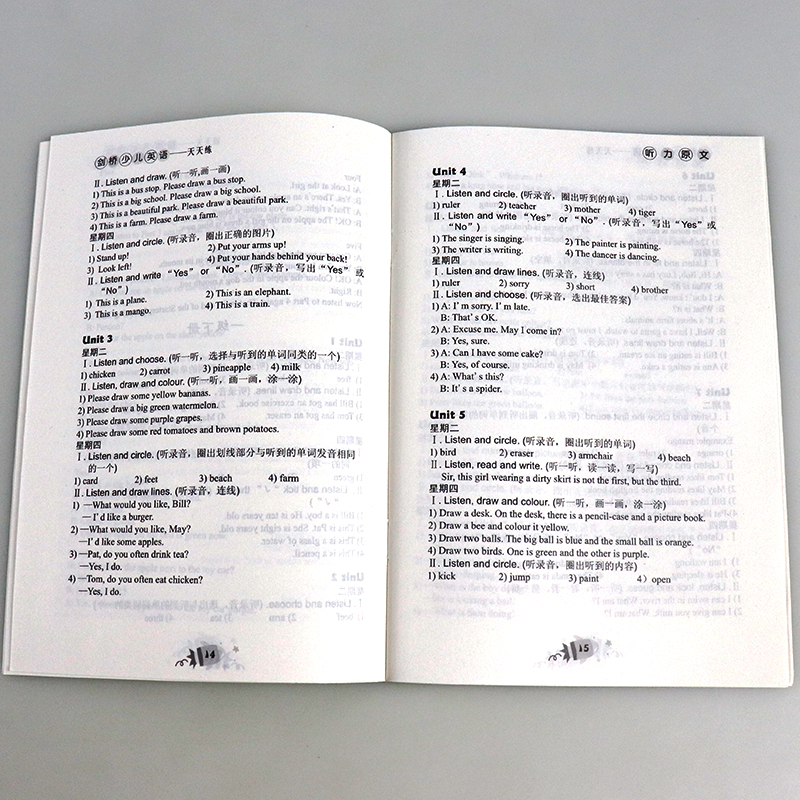 剑桥少儿英语——天天练
Ⅱ. Listen and draw. (听一听,画一画)
1) This is a bus stop. Please draw a bus stop.
2) This is a big school. Please draw a big school.
3) This is a beautiful park. Please draw a beautiful park.
4) This is a farm. Please draw a farm.
星期四
Ⅰ. Listen and circle. (听录音，圈出正确的图片)
1) Stand up! 2) Put your arms up!
3) Look left! 4) Put your hands behind your back!
Ⅱ. Listen and write “Yes” or “No”. (听录音，写出“Yes”或
“No”)
1) This is a plane. 2) This is an elephant.
3) This is a mango. 4) This is a train.
Unit 3
星期二
Ⅰ. Listen and choose. (听一听，选择与听到的单词同类的一个)
1) chicken 2) carrot 3) pineapple 4) milk
Ⅱ. Listen, draw and colour. (听一听，画一画，涂一涂)
1) Please draw some yellow bananas.
2) Please draw a big green watermelon.
3) Please draw some purple grapes.
4) Please draw some red tomatoes and brown potatoes.
星期四
Ⅰ. Listen and circle. (听录音，圈出划线部分与听到的单词发音相同
的一个)
1) card 2) feet 3) beach 4) farm
Ⅱ. Listen and draw lines. (听录音，连线)
1) —What would you like, Bill?
—I'd like a burger.
2) —What would you like, May?
—I'd like some apples.
3) —Pat, do you often drink tea?
—Yes, I do.
4) —Tom, do you often eat chicken?
—Yes, I do.
14
听力原文
Unit 4
星期二
Ⅰ. Listen and circle. (听录音，圈出听到的单词)
1) ruler 2) teacher 3) mother 4) tiger
Ⅱ. Listen and write “Yes” or “No”. (听录音，写出“Yes”或
“No”)
1) The singer is singing. 2) The painter is painting.
3) The writer is writing. 4) The dancer is dancing.
星期四
Ⅰ. Listen and draw lines. (听录音，连线)
1) ruler 2) sorry 3) short 4) brother
Ⅱ. Listen and choose. (听录音，选出最佳答案)
1) A: I'm sorry. I'm late.
B: That's OK.
2) A: Excuse me. May I come in?
B: Yes, sure.
3) A: Can I have some cake?
B: Yes, of course.
4) A: What's this?
B: It's a spider.
Unit 5
星期二
Ⅰ. Listen and circle. (听录音，圈出听到的单词)
1) bird 2) eraser 3) armchair 4) beach
Ⅱ. Listen, read and write. (听一听，读一读，写一写)
Sir, this girl wearing a dirty skirt is not the first, but the third.
星期四
Ⅰ. Listen, draw and colour. (听一听，画一画，涂一涂)
1) Draw a desk. On the desk, there is a pencil-case and a picture book.
2) Draw a bee and colour it yellow.
3) Draw two balls. The big ball is blue and the small ball is orange.
4) Draw two birds. One is green and the other is purple.
Ⅱ. Listen and circle. (听录音，圈出听到的内容)
1) kick 2) jump 3) paint 4) open
15